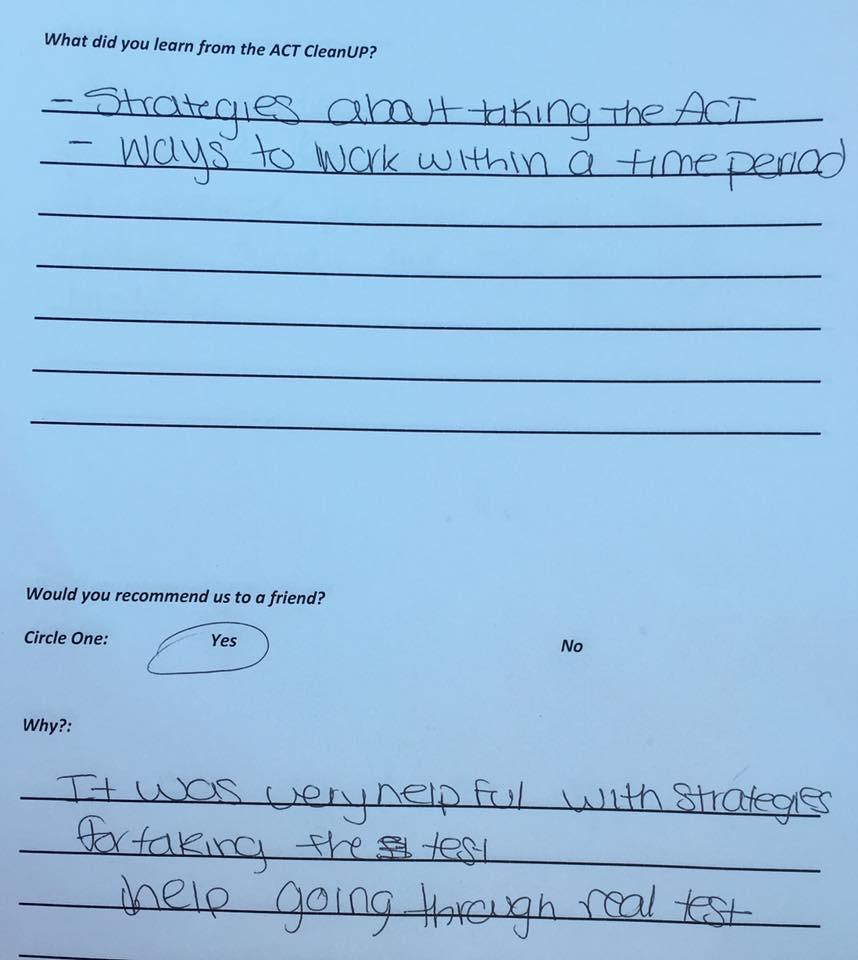 What did you learn from the ACT CleanUP?
- Strategies about taking The ACT
- Ways to work within a time period
Would you recommend us to a friend?
Circle One: Yes No
Why?:
It was very helpful with strategies
for taking the test
help going through real test